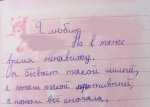 Я люблю
Но в тоже
время ненавижу.
Он бывает такой милый,
а потом такой противный,
а потом все сначала.